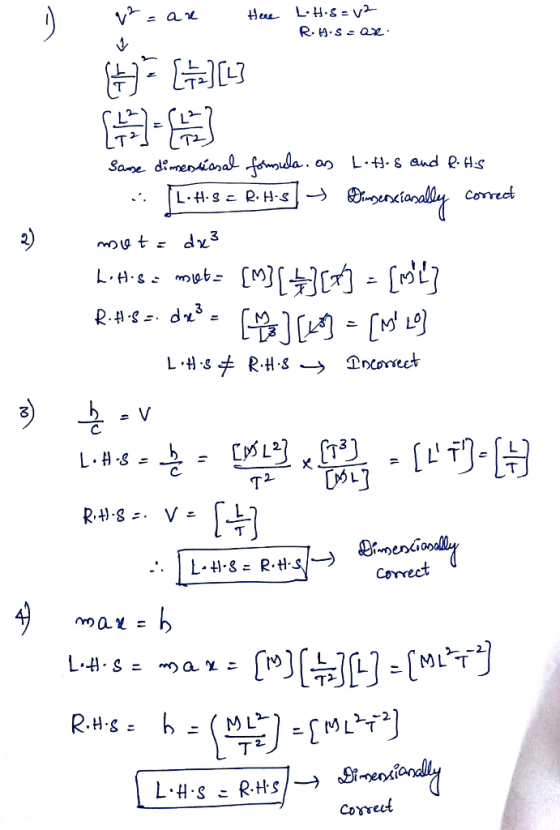 1) v² = ax Here L.H.S = v²
R.H.S = ax.
↓
[L/T]² = [L/T²][L]
[L²/T²] = [L²/T²]
Same dimensional formula. on L.H.S and R.H.S
∴ L.H.S = R.H.S → Dimensionally correct
2) mvt = dx³
L.H.S = mvt = [M][L/T][T] = [M¹L¹]
R.H.S =. dx³ = [M/L³][L³] = [M¹ L⁰]
L.H.S ≠ R.H.S → Incorrect
3) b/c = V
L.H.S = b/c = [ML²]/T² × [T³]/[ML] = [L¹ T⁻¹] = [L/T]
R.H.S =. V = [L/T]
∴ L.H.S = R.H.S → Dimensionally
correct
4) max = b
L.H.S = max = [M][L/T²][L] = [ML²T⁻²]
R.H.S = b = (ML²/T²) = [ML²T⁻²]
L.H.S = R.H.S → Dimensionally
correct